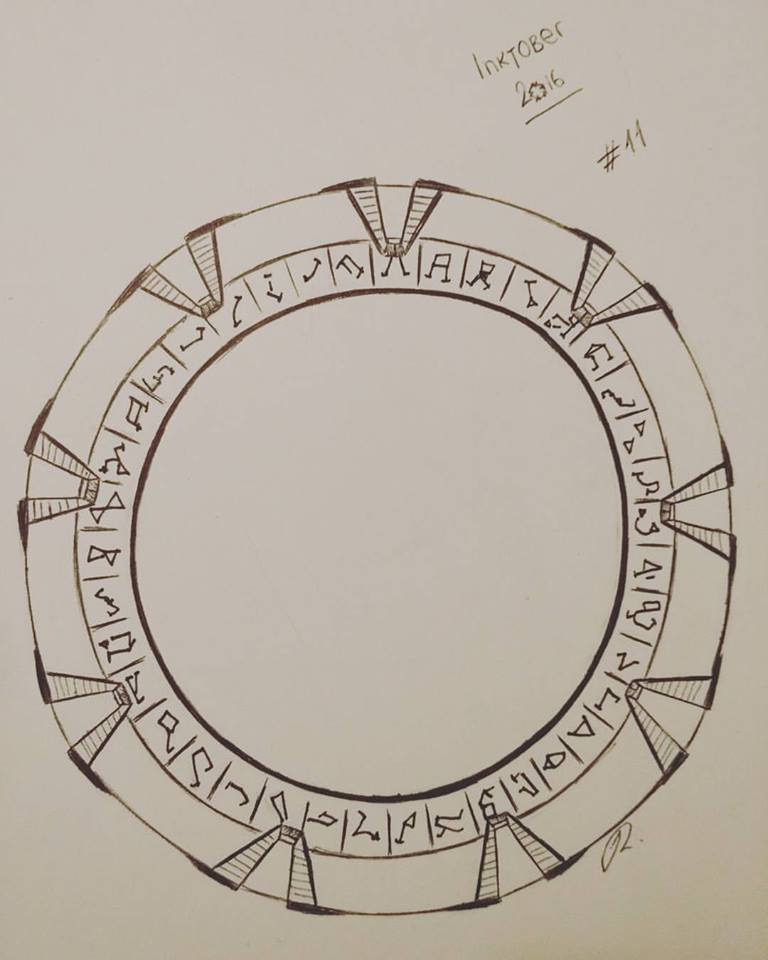 Inktober
2016
#11